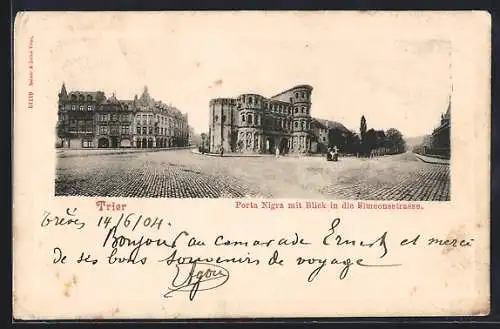 Trier
Porta Nigra mit Blick in die Simeonsstrasse.
Trèves 14/6/04.
Bonjour au camarade Ernest et merci
de ses bons souvenirs de voyage